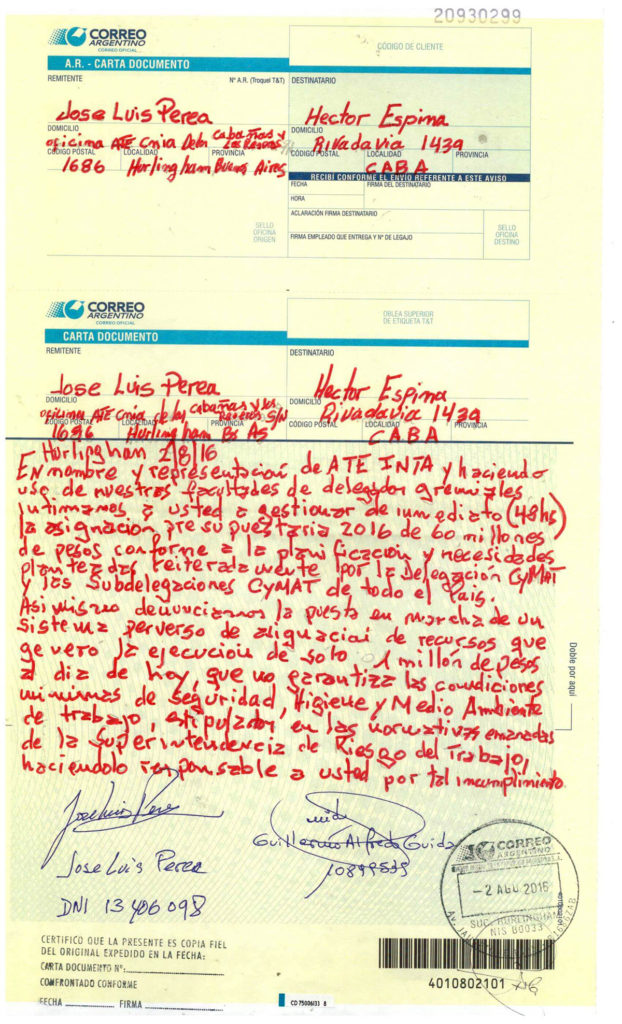 20930299
CORREO
ARGENTINO
CORREO OFICIAL
CÓDIGO DE CLIENTE
A.R. - CARTA DOCUMENTO
REMITENTE
Nº A.R. (Troquel T&T)
DESTINATARIO
Jose Luis Perea
Hector Espina
DOMICILIO
DOMICILIO
oficina ATE Cnia Delos Cabañas y
Los Reseros
Rivadavia 1439
CÓDIGO POSTAL LOCALIDAD PROVINCIA
CÓDIGO POSTAL LOCALIDAD PROVINCIA
1686 Hurlingham Buenos Aires
CABA
RECIBÍ CONFORME EL ENVÍO REFERENTE A ESTE AVISO
FECHA FIRMA DEL DESTINATARIO
HORA
ACLARACIÓN FIRMA DESTINATARIO
SELLO
OFICINA
ORIGEN
FIRMA EMPLEADO QUE ENTREGA Y Nº DE LEGAJO
SELLO
OFICINA
DESTINO
CORREO
ARGENTINO
CORREO OFICIAL
OBLEA SUPERIOR
DE ETIQUETA T&T
CARTA DOCUMENTO
REMITENTE
DESTINATARIO
Jose Luis Perea
Hector Espina
DOMICILIO
DOMICILIO
oficina ATE Cnia de los Cabañas y los
Reseros S/N
Rivadavia 1439
CÓDIGO POSTAL LOCALIDAD PROVINCIA
CÓDIGO POSTAL LOCALIDAD PROVINCIA
1686 Hurlingham Bs As
CABA
Hurlingham 2/8/16
EN nombre y representación de ATE INTA y haciendo
uso de nuestras facultades de delegados gremiales
intimamos a usted a gestionar de inmediato (48hs)
la asignacion presupuestaria 2016 de 60 millones
de pesos conforme a la planificación y necesidades
planteadas reiteradamente por la Delegación CyMAT
y las Subdelegaciones CyMAT de todo el País.
Asimismo denunciamos la puesta en marcha de un
sistema perverso de asignación de recursos que
genero la ejecucion de solo 1 millón de pesos
a dia de hoy, que no garantiza las condiciones
minimas de Seguridad, Higiene y Medio Ambiente
de trabajo, estipulados en las normativas emanadas
de la Superintendencia de Riesgo del Trabajo,
haciendolo responsable a usted por tal incumplimiento
Doble por aquí
Jose Luis Perea
Guillermo Alfredo Guida
Jose Luis Perea
10899539
DNI 13406098
CORREO
ARGENTINO
- 2 AGO 2016
SUC. HURLINGHAM
NIS B0033
CERTIFICO QUE LA PRESENTE ES COPIA FIEL
DEL ORIGINAL EXPEDIDO EN LA FECHA:
CARTA DOCUMENTO Nº:
CONFRONTADO CONFORME
FECHA FIRMA
4010802101